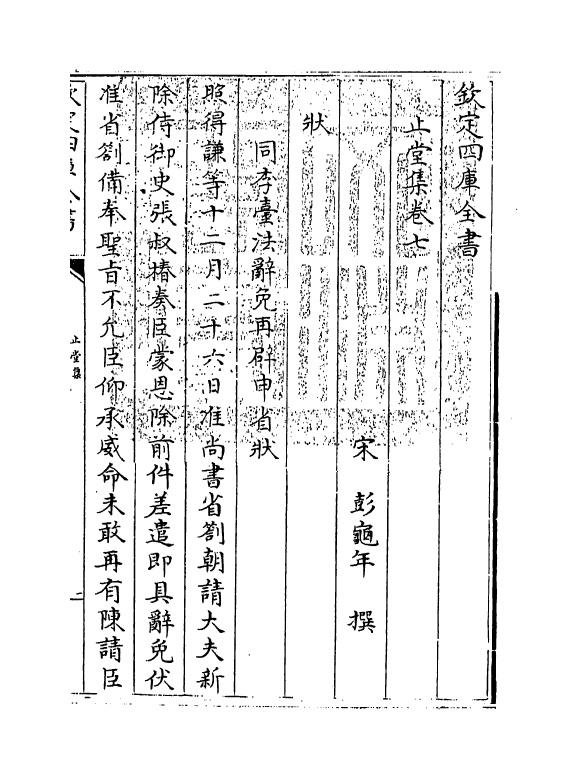 欽定四庫全書
止堂集卷七
宋 彭龜年 撰
狀
同李臺法辭免再辟申省狀
照得謙等十二月二十六日准尚書省劄朝請大夫新
除侍御史張叔椿奏臣蒙恩除前件差遣即具辭免伏
准省劄備奉聖旨不允臣仰承威命未敢再有陳請臣
欽定四庫全書
止堂集